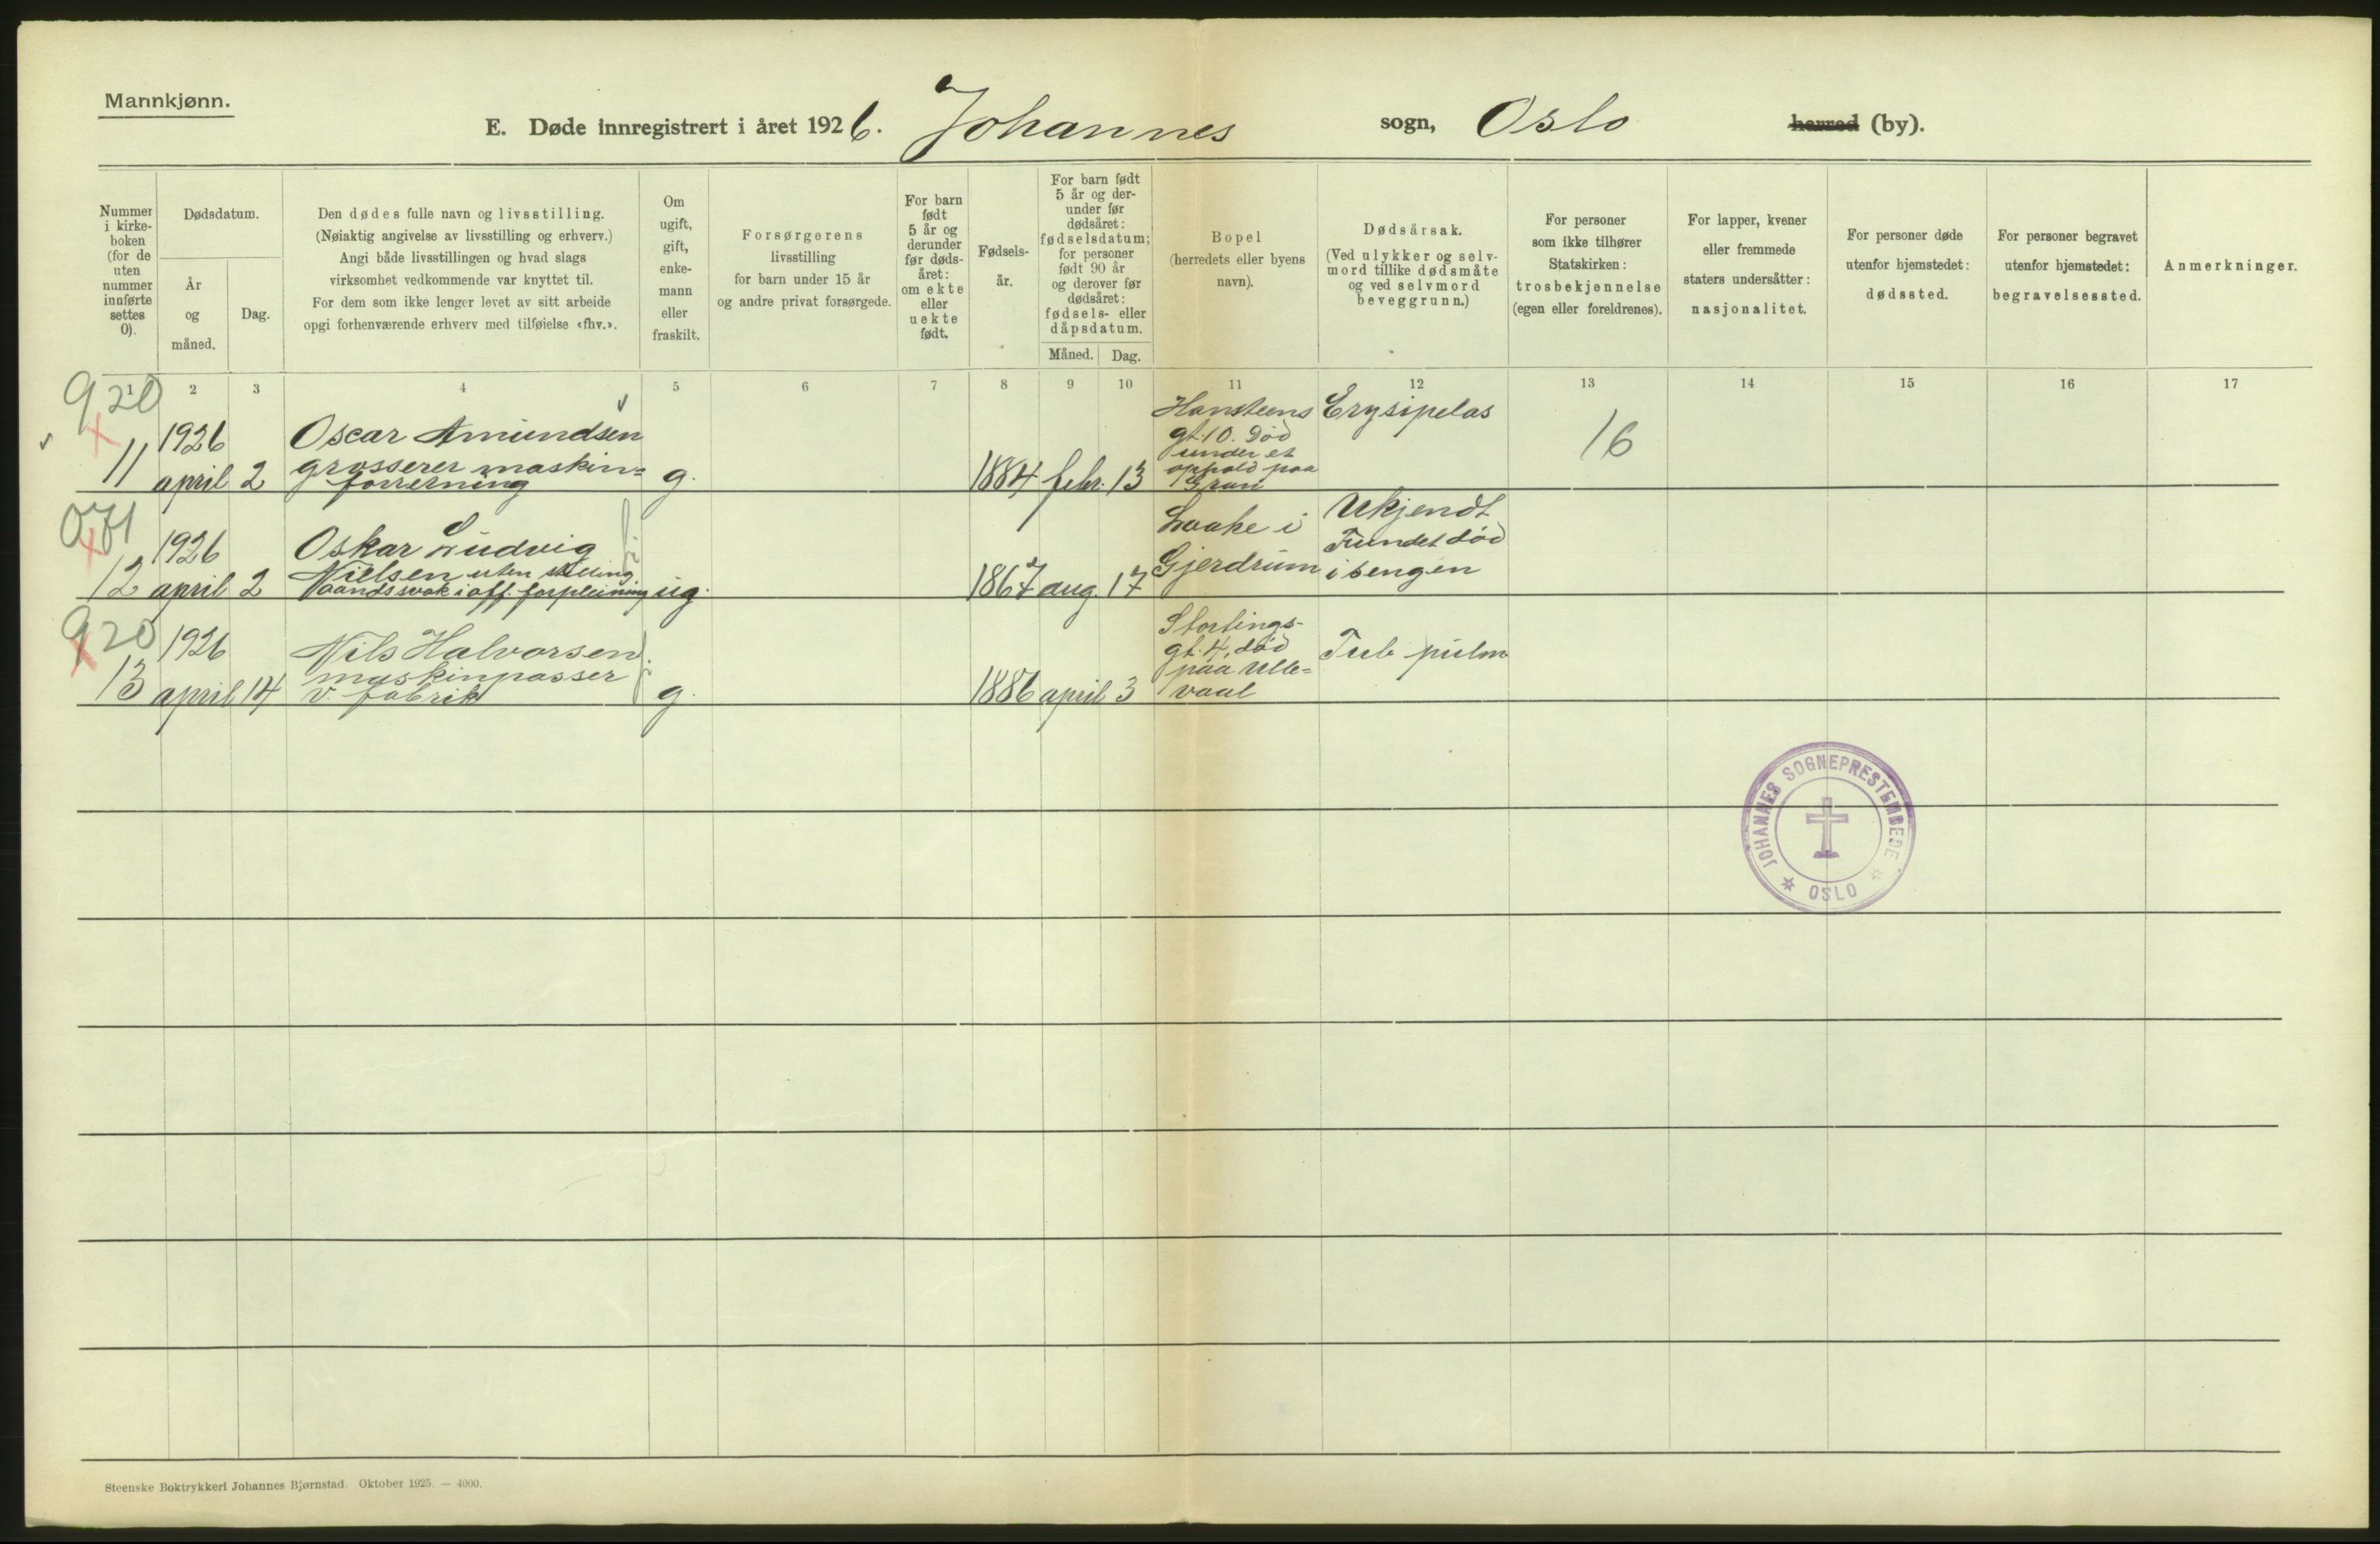 Mannkjønn.
E. Døde innregistrert i året 1926. Johannes sogn, Oslo herred (by).
Nummer
i kirke-
boken
(for de
uten
nummer
innførte
settes
0).
Dødsdatum.
År
og
måned.
Dag.
Den dødes fulle navn og livsstilling.
(Nøiaktig angivelse av livsstilling og erhverv.)
Angi både livsstillingen og hvad slags
virksomhet vedkommende var knyttet til.
For dem som ikke lenger levet av sitt arbeide
opgi forhenværende erhverv med tilføielse «fhv.».
Om
ugift,
gift,
enke-
mann
eller
fraskilt.
Forsørgerens
livsstilling
for barn under 15 år
og andre privat forsørgede.
For barn
født
5 år og
derunder
før døds-
året:
om ekte
eller
uekte
født.
Fødsels-
år.
For barn født
5 år og der-
under før
dødsåret:
fødselsdatum;
for personer
født 90 år
og derover før
dødsåret:
fødsels- eller
dåpsdatum.
Måned. Dag.
Bopel
(herredets eller byens
navn).
Dødsårsak.
(Ved ulykker og selv-
mord tillike dødsmåte
og ved selvmord
beveggrunn.)
For personer
som ikke tilhører
Statskirken:
trosbekjennelse
(egen eller foreldrenes).
For lapper, kvener
eller fremmede
staters undersåtter:
nasjonalitet.
For personer døde
utenfor hjemstedet:
dødssted.
For personer begravet
utenfor hjemstedet:
begravelsessted.
Anmerkninger.
1 2 3 4 5 6 7 8 9 10 11 12 13 14 15 16 17
920
11
1926
april 2
Oscar Amundsen
grosserer maskin=
forretning
g.
1884 febr. 13
Hansteens
gt. 10. Død
under et
ophold paa
Gran
Erysipelas
16
071
12
1926
april 2
Oskar Ludvig
Nielsen uten stilling
aandssvak i off. forpleining
ug.
1867 aug. 17
Laake i
Gjerdrum
Ukjendt
Fundet død
i sengen
920
13
1926
april 14
Nils Halvorsen
maskinpasser
v. fabrik
g.
1886 april 3
Stortings-
gt. 4, død
paa Ulle=
vaal
Tub pulm
JOHANNES SOGNEPRESTEMBEDE
OSLO
Steenske Boktrykkeri Johannes Bjørnstad. Oktober 1925. — 4000.